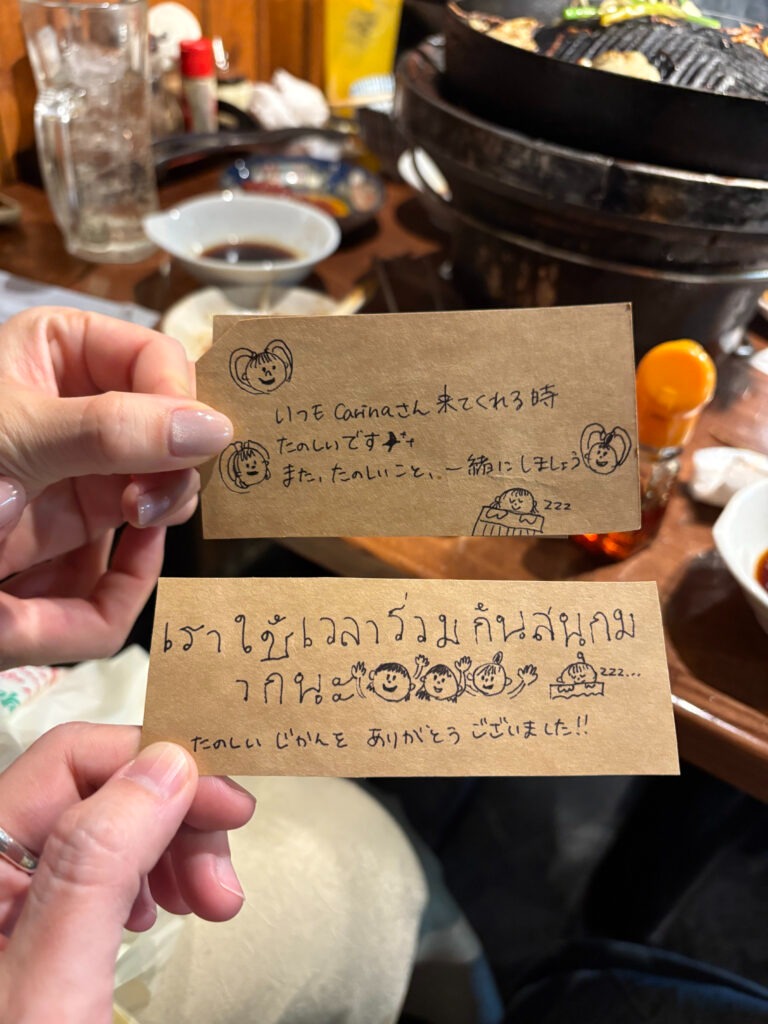 いつも Carinaさん 来てくれる時
たのしいです
また、たのしいこと、一緒にしましょう
zzz
เราใช้เวลาร่วมกันสนุกม
ากนะ
zzz...
たのしい じかんを ありがとう ございました!!